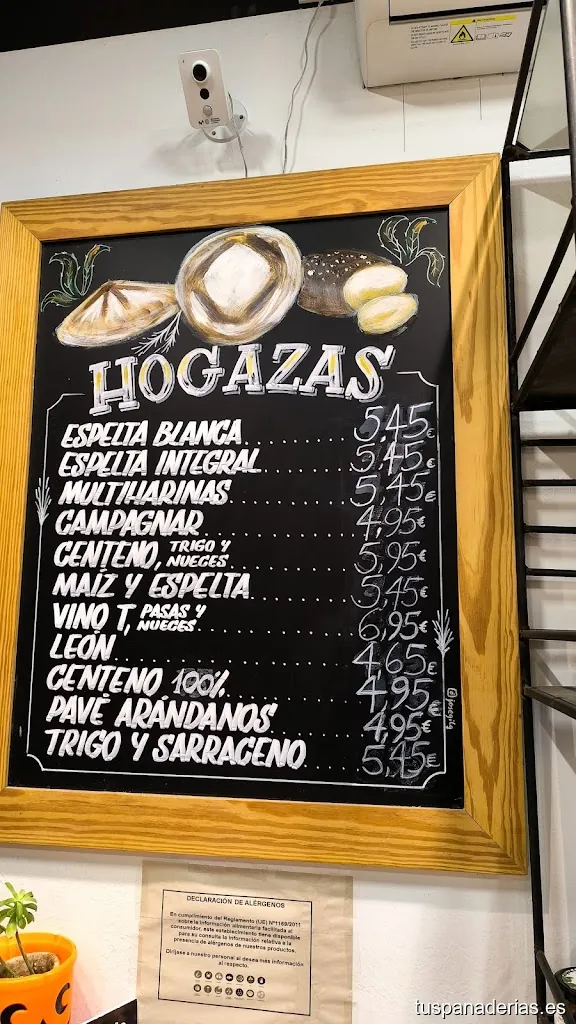 HOGAZAS
ESPELTA BLANCA 5,45€
ESPELTA INTEGRAL 5,45€
MULTIHARINAS 5,45€
CAMPAGNAR 4,95€
CENTENO, TRIGO Y NUECES 5,95€
MAÍZ Y ESPELTA 5,45€
VINO T, PASAS Y NUECES 6,95€
LEÓN 4,65€
CENTENO 100% 4,95€
PAVÉ ARÁNDANOS 4,95€
TRIGO Y SARRACENO 5,45€
DECLARACIÓN DE ALÉRGENOS
En cumplimiento del Reglamento (UE) Nº1169/2011
sobre la información alimentaria facilitada al
consumidor, este establecimiento tiene disponible
para su consulta la información relativa a la
presencia de alérgenos de nuestros productos.
Diríjase a nuestro personal si desea más información
al respecto.
tuspanaderias.es